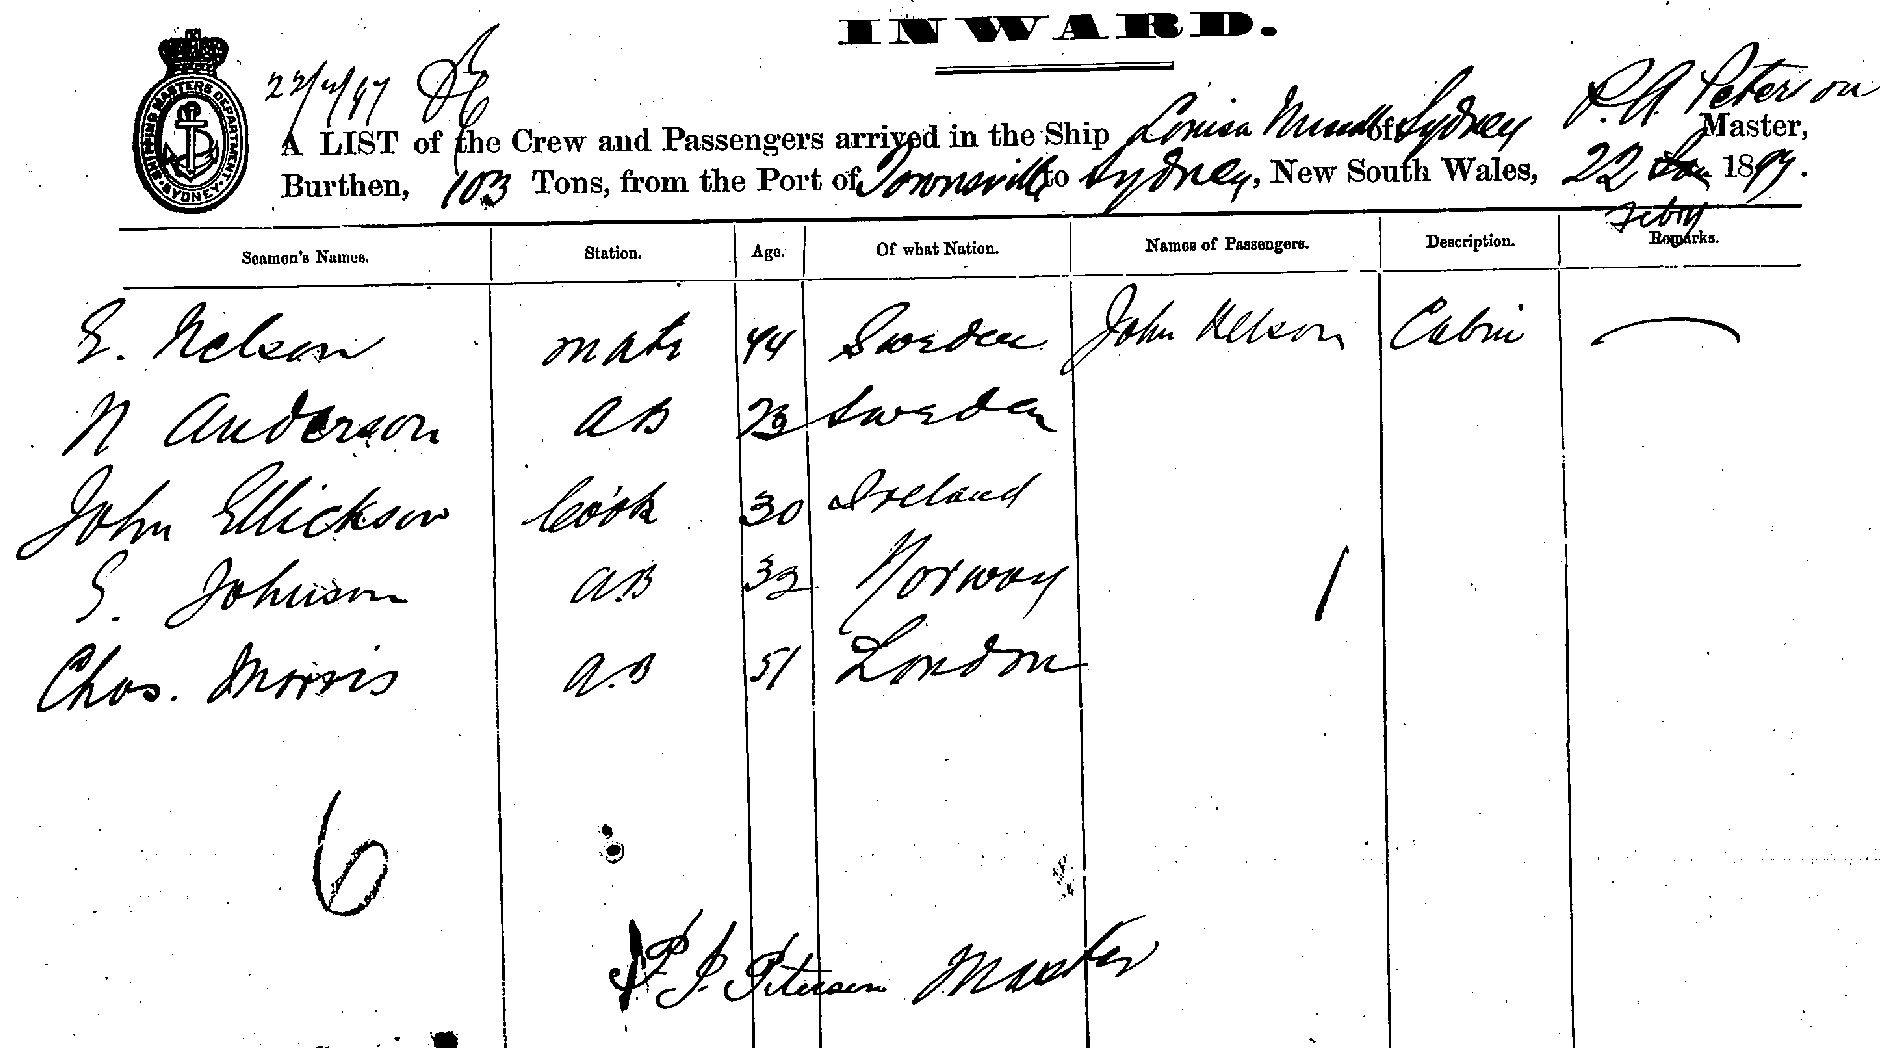 INWARD.
SHIPPING MASTERS DEPARTMENT
SYDNEY
22/2/97
P. A. Peterson
A LIST of the Crew and Passengers arrived in the Ship Louisa of Sydney Master,
Burthen, 103 Tons, from the Port of Townsville to Sydney, New South Wales, 22 Jan 1897.
Febry
Seamen's Names. Station. Age. Of what Nation. Names of Passengers. Description. Remarks.
E. Nelson mate 44 Sweden John Nelson Cabin
N Anderson AB 23 Sweden
John Ellickson Cook 30 Ireland
E. Johnson AB 32 Norway 1
Chas. Morris A.B 51 London
6
P. J. Peterson Master